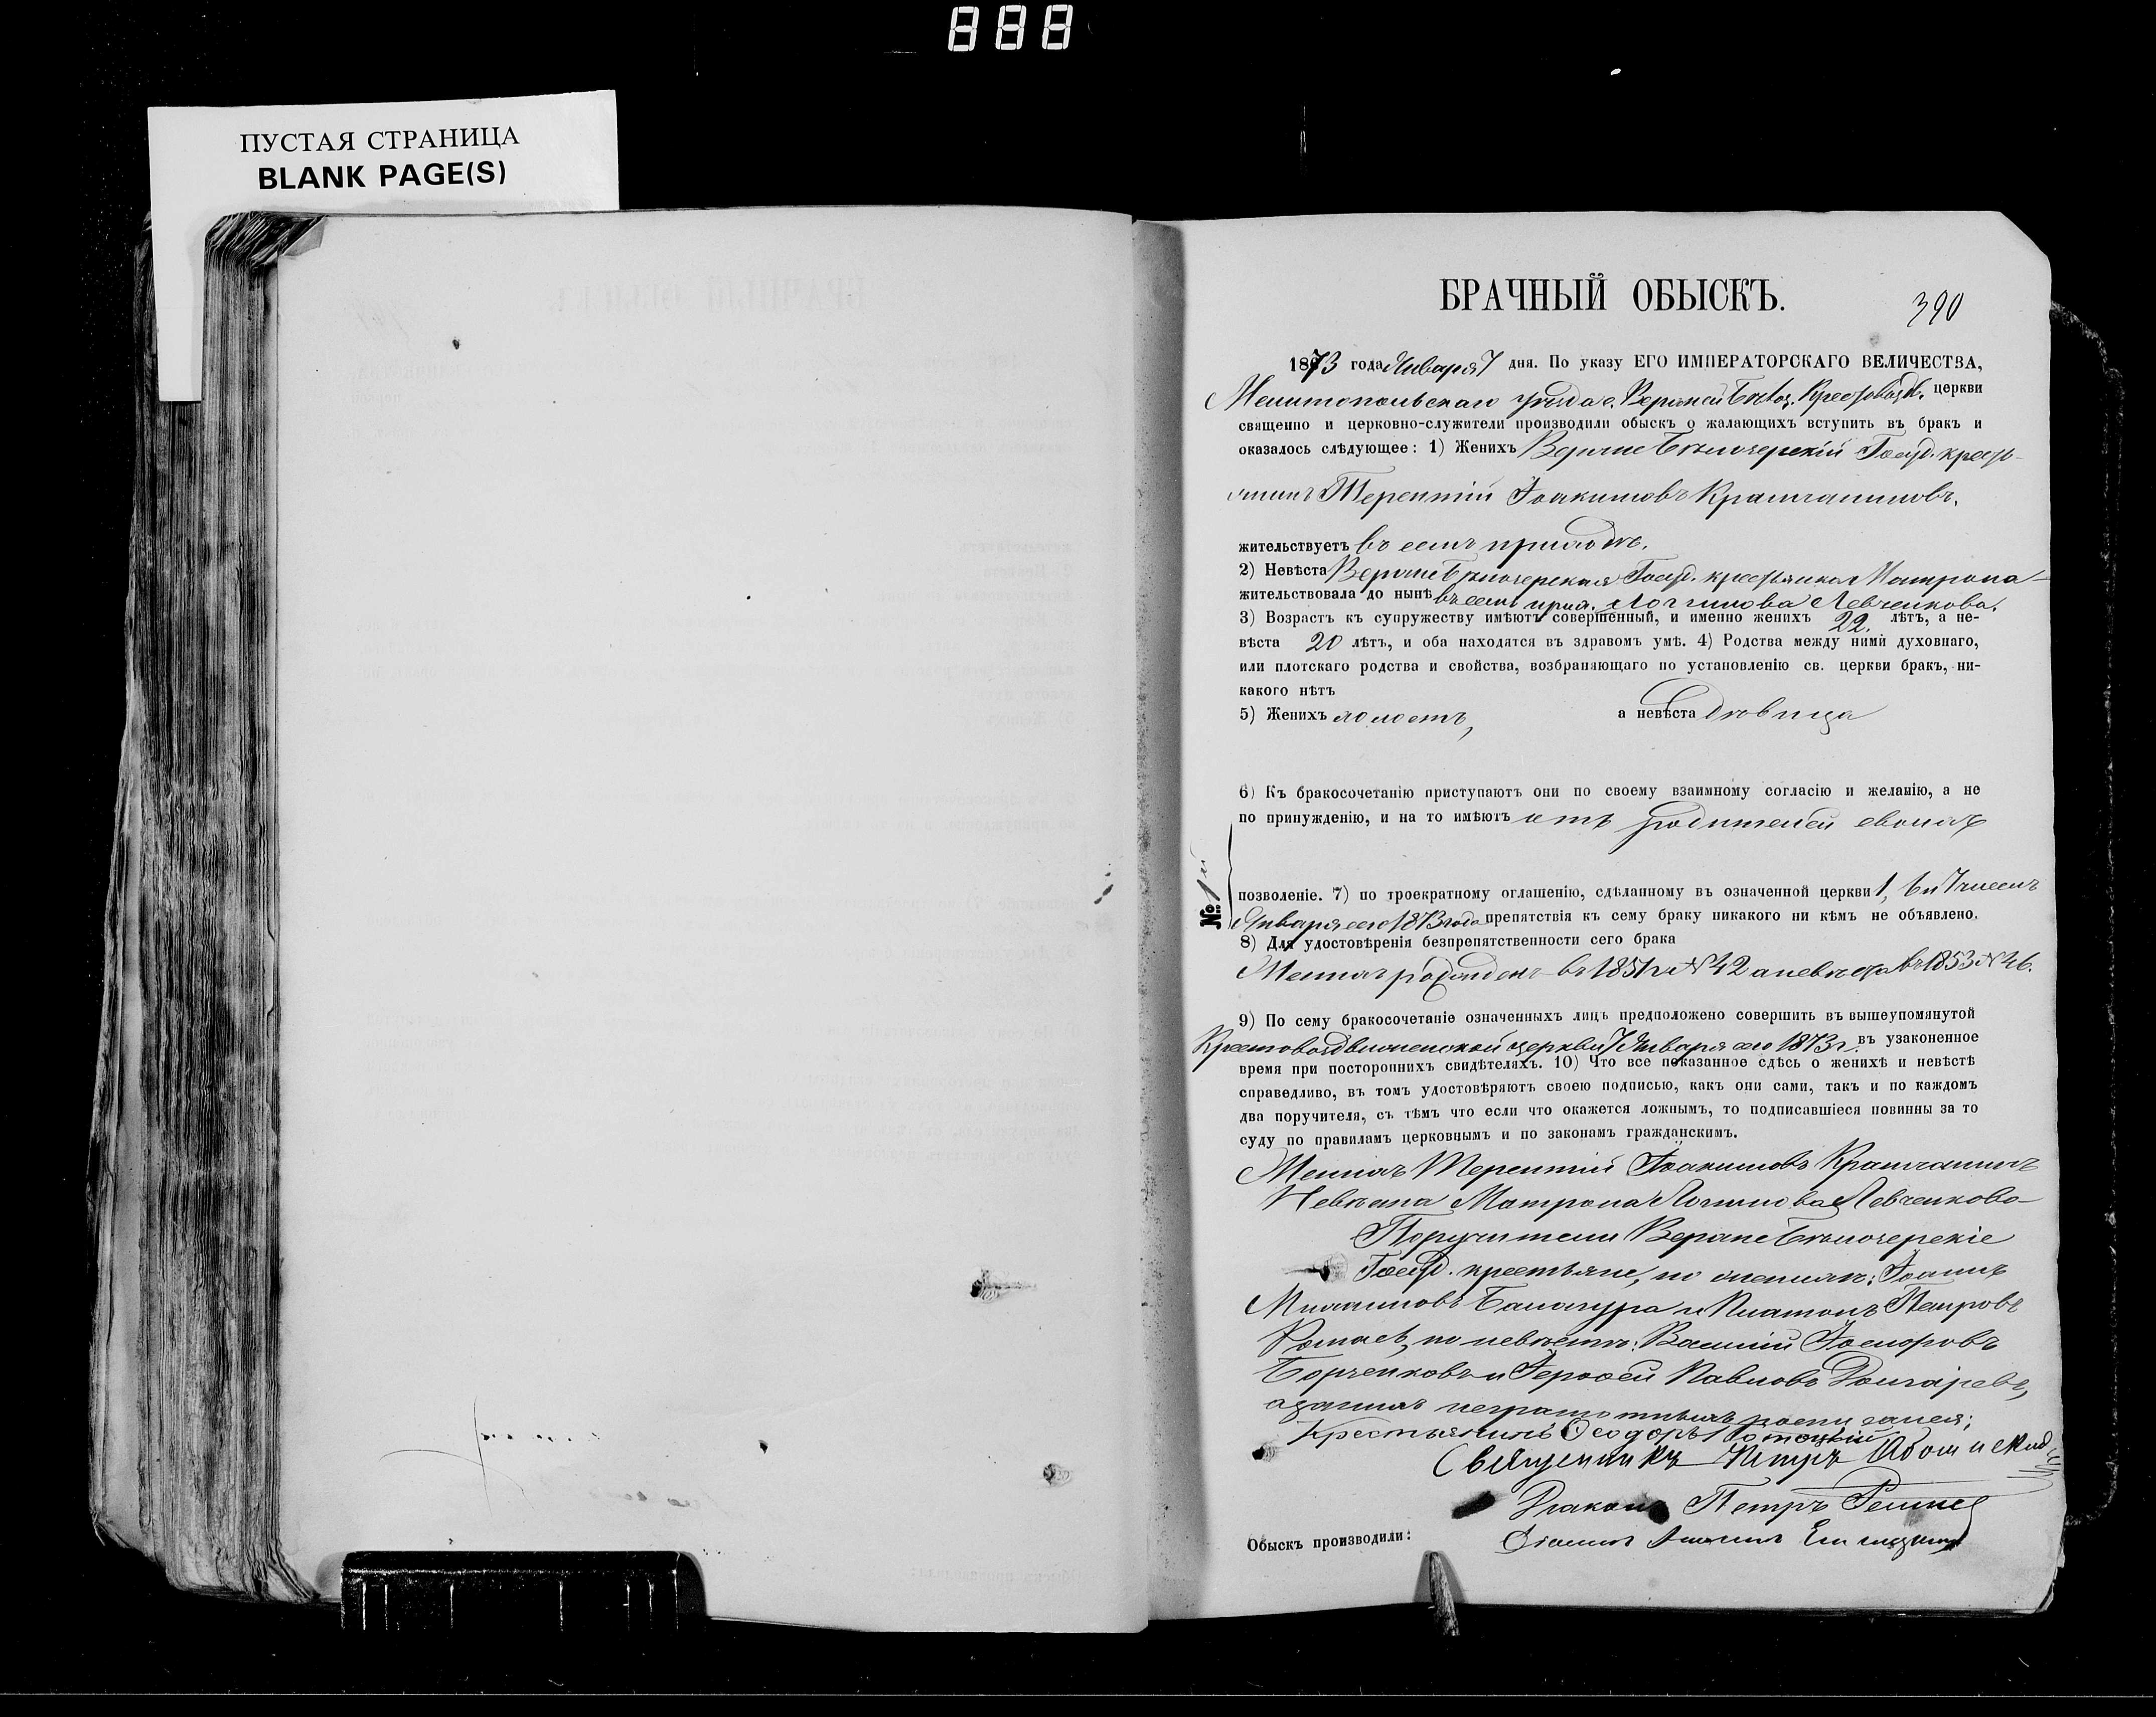 888
ПУСТАЯ СТРАНИЦА
BLANK PAGE(S)
БРАЧНЫЙ ОБЫСКЪ.
390
1873 года Января 7 дня. По указу ЕГО ИМПЕРАТОРСКАГО ВЕЛИЧЕСТВА,
Мелитопольскаго уѣзда с. Верхней Бѣлоз. Крестовозд. церкви
священно и церковно-служители производили обыскъ о жалающихъ вступить въ бракъ и
оказалось слѣдующее: 1) Женихъ Верхне Бѣлозерскій Госуд. кресть-
янинъ Терентій Іоакимовъ
жительствуетъ въ семъ приходѣ.
2) Невѣста Верхне Бѣлозерская Госуд. крестьянка Матрона
жительствовала до нынѣ въ семъ прих. Логгинова Левченкова.
3) Возрастъ къ супружеству имѣютъ совершенный, и именно женихъ 22. лѣтъ, а не-
вѣста 20 лѣтъ, и оба находятся въ здравомъ умѣ. 4) Родства между ними духовнаго,
или плотскаго родства и свойства, возбраняющаго по установленію св. церкви бракъ, ни-
какого нѣтъ
5) Женихъ холостъ, а невѣста дѣвица
6) Къ бракосочетанію приступаютъ они по своему взаимному согласію и желанію, а не
по принужденію, и на то имѣютъ отъ родителей своихъ
№ 1й
позволеніе. 7) по троекратному оглашенію, сдѣланному въ означенной церкви 1, 6 и 7 чиселъ
Января сего 1873 года препятствія къ сему браку никакого ни кѣмъ не объявлено.
8) Для удостовѣренія безпрепятственности сего брака
Женихъ рожденъ въ 1851 г. № 42 а невѣста въ 1853 № 46.
9) По сему бракосочетаніе означенныхъ лицъ предположено совершить въ вышеупомянутой
Крестовоздвиженской церкви 7 Января сего 1873 г. въ узаконенное
время при постороннихъ свидѣтеляхъ. 10) Что все показанное сдѣсь о женихѣ и невѣстѣ
справедливо, въ томъ удостовѣряютъ своею подписью, какъ они сами, такъ и по каждомъ
два поручителя, съ тѣмъ что если что окажется ложнымъ, то подписавшіеся повинны за то
суду по правиламъ церковнымъ и по законамъ гражданскимъ.
Женихъ Терентій Іоакимовъ
Невѣста Матрона Логгинова Левченкова
Поручители Верхне Бѣлозерскіе
Госуд. крестьяне, по женихѣ: Іоаннъ
Балагура и Платонъ Петровъ
по невѣстѣ: Василій
Борченковъ и Іерофей Павловъ
а за нихъ неграмотныхъ росписался:
Крестьянинъ Ѳеодоръ
Священникъ Петръ
Діаконъ Петръ
Обыскъ производили: